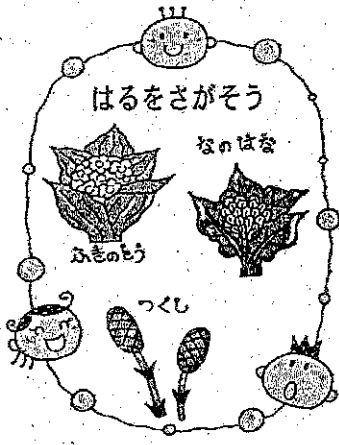 はるをさがそう
なのはな
ふきのとう
つくし